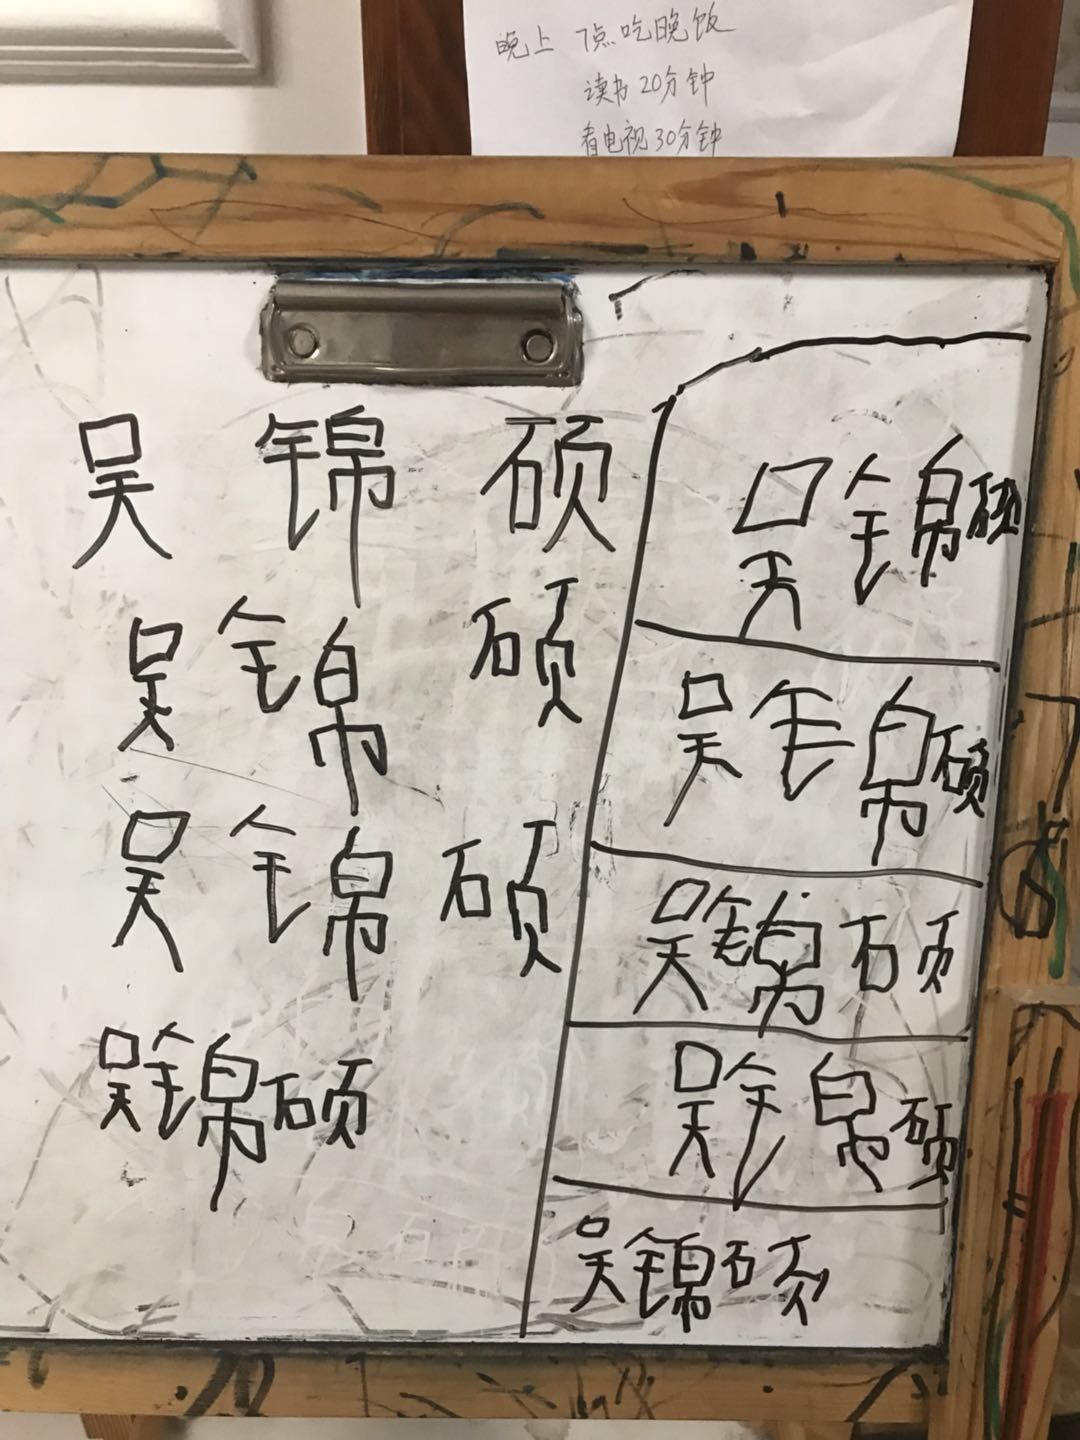 晚上 7点吃晚饭
读书20分钟
看电视30分钟
吴锦硕
吴锦硕
吴锦硕
吴锦硕
吴锦硕
吴锦硕
吴锦硕
吴锦硕
吴锦硕